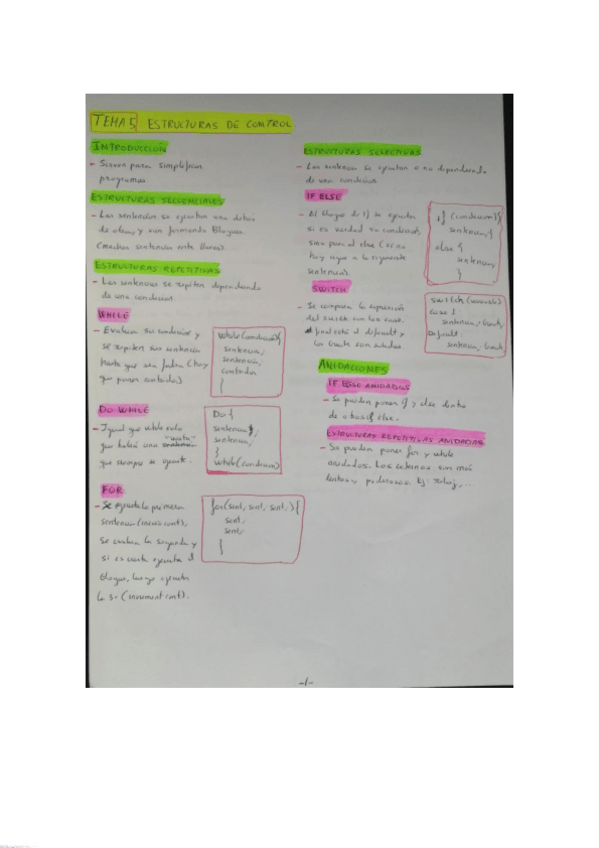 TEMA 5 ESTRUCTURAS DE CONTROL
INTRODUCCIÓN
- Sirven para simplificar
programas.
ESTRUCTURAS SECUENCIALES
- Las sentencias se ejecutan una detrás
de otra, y van formando Bloques
(muchas sentencias entre llaves).
ESTRUCTURAS REPETITIVAS
- Las sentencias se repiten dependiendo
de una condición
WHILE
- Evalúan su condición y
se repiten sus sentencias
hasta que sea falsa (hay
que poner contador)
while(condición){
sentencia;
sentencia;
contador
}
DO WHILE
- Igual que while solo
que habrá una sentencia
que siempre se ejecute.
Do {
sentencia;
sentencia;
}
while(condicion)
FOR
- Se ejecuta la primera
sentencia (inicio cont),
se evalua la segunda y
si es cierta ejecuta el
Bloque, luego ejecuta
la 3ª (increment cont).
for(sent; sent; sent;){
sent;
sent;
}
ESTRUCTURAS SELECTIVAS
- Las sentencias se ejecutan o no dependiendo
de una condición.
IF ELSE
- El bloque de if se ejecuta
si es verdad su condición,
sino pasa al else (si no
hay sigue a la siguiente
sentencia).
if (condicion){
sentencia;}
else {
sentencia;
}
SWITCH
- Se compara la expresión
del switch con los case.
Al final está el default y
los break son
switch(variable)
case 1
sentencia; break;
Default:
sentencia; break
ANIDACIONES
IF ELSE ANIDADOS
- Se pueden poner if y else dentro
de otros if else.
ESTRUCTURAS REPETITIVAS ANIDADAS
- Se pueden poner for y while
anidados. Los son más
lentos y poderosos Ej: Reloj, ...
-1-